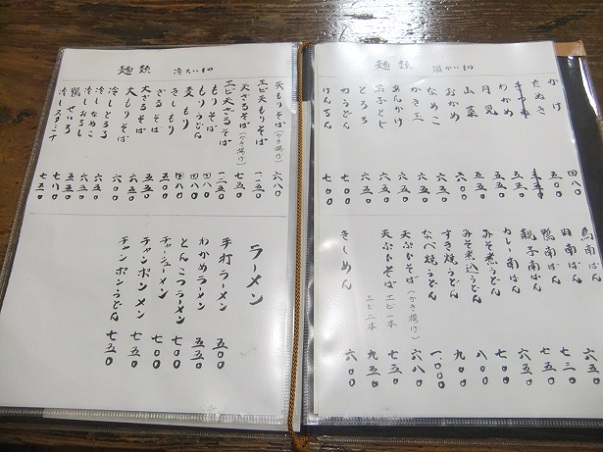 麺類 温かいもの
かけ 四八〇
たぬき 五五〇
わかめ 五五〇
月見 五五〇
山菜 六五〇
おかめ 六〇〇
なめこ 六五〇
かき玉 六五〇
あんかけ 六五〇
玉子とじ 六五〇
とろろ 六五〇
力うどん 七〇〇
けんちん 七〇〇
鳥南ばん 六五〇
肉南ばん 七三〇
鴨南ばん 七五〇
親子南ばん 六五〇
カレー南ばん 七〇〇
みそ煮込うどん 八〇〇
すき焼うどん 九〇〇
なべ焼うどん 一、〇〇〇
天ぷらそば(かき揚げ) 六八〇
天ぷらそば エビ一本 七五〇
エビ二本 九五〇
きしめん 六〇〇
麺類 冷たいもの
天もりそば(かき揚げ) 六八〇
エビ天もりそば 一一五〇
天ざるそば(かき揚げ) 七五〇
エビ天ざるそば 一二五〇
もりそば 四八〇
もりうどん 四八〇
変もり 四八〇
きしもり 五五〇
ざるそば 五五〇
大もりそば 六五〇
大ざるそば 六〇〇
冷しとろろ 六五〇
冷しなめこ 六五〇
冷しおろし 六五〇
鴨せいろ 七八〇
冷しスタミナ 七五〇
ラーメン
手打ラーメン 五〇〇
わかめラーメン 五五〇
とんこつラーメン 七〇〇
チャーシューメン 七〇〇
チャンポンメン 七五〇
チャンポンうどん 七五〇